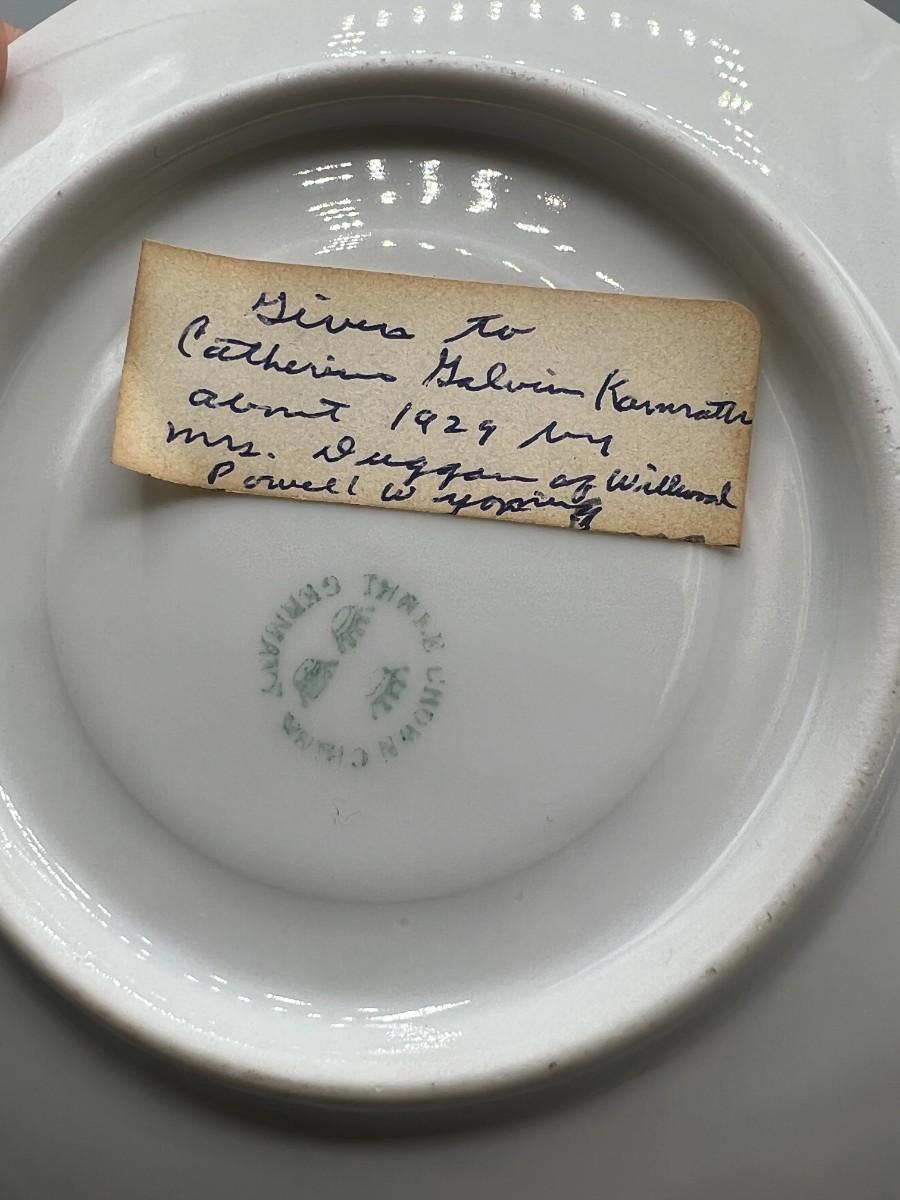 Given to
Catherine Galvin Kamrath
about 1929 by
Mrs. Duggan of Willwood
Powell Wyoming
THREE CROWN CHINA
GERMANY